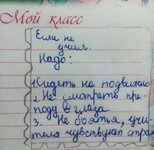 Мой класс
Если не
учил.
Надо:
1. Сидеть не подвижно
2. Не смотреть пре-
поду в глаза
3. Не бояться, учи-
теля чувствуют страх